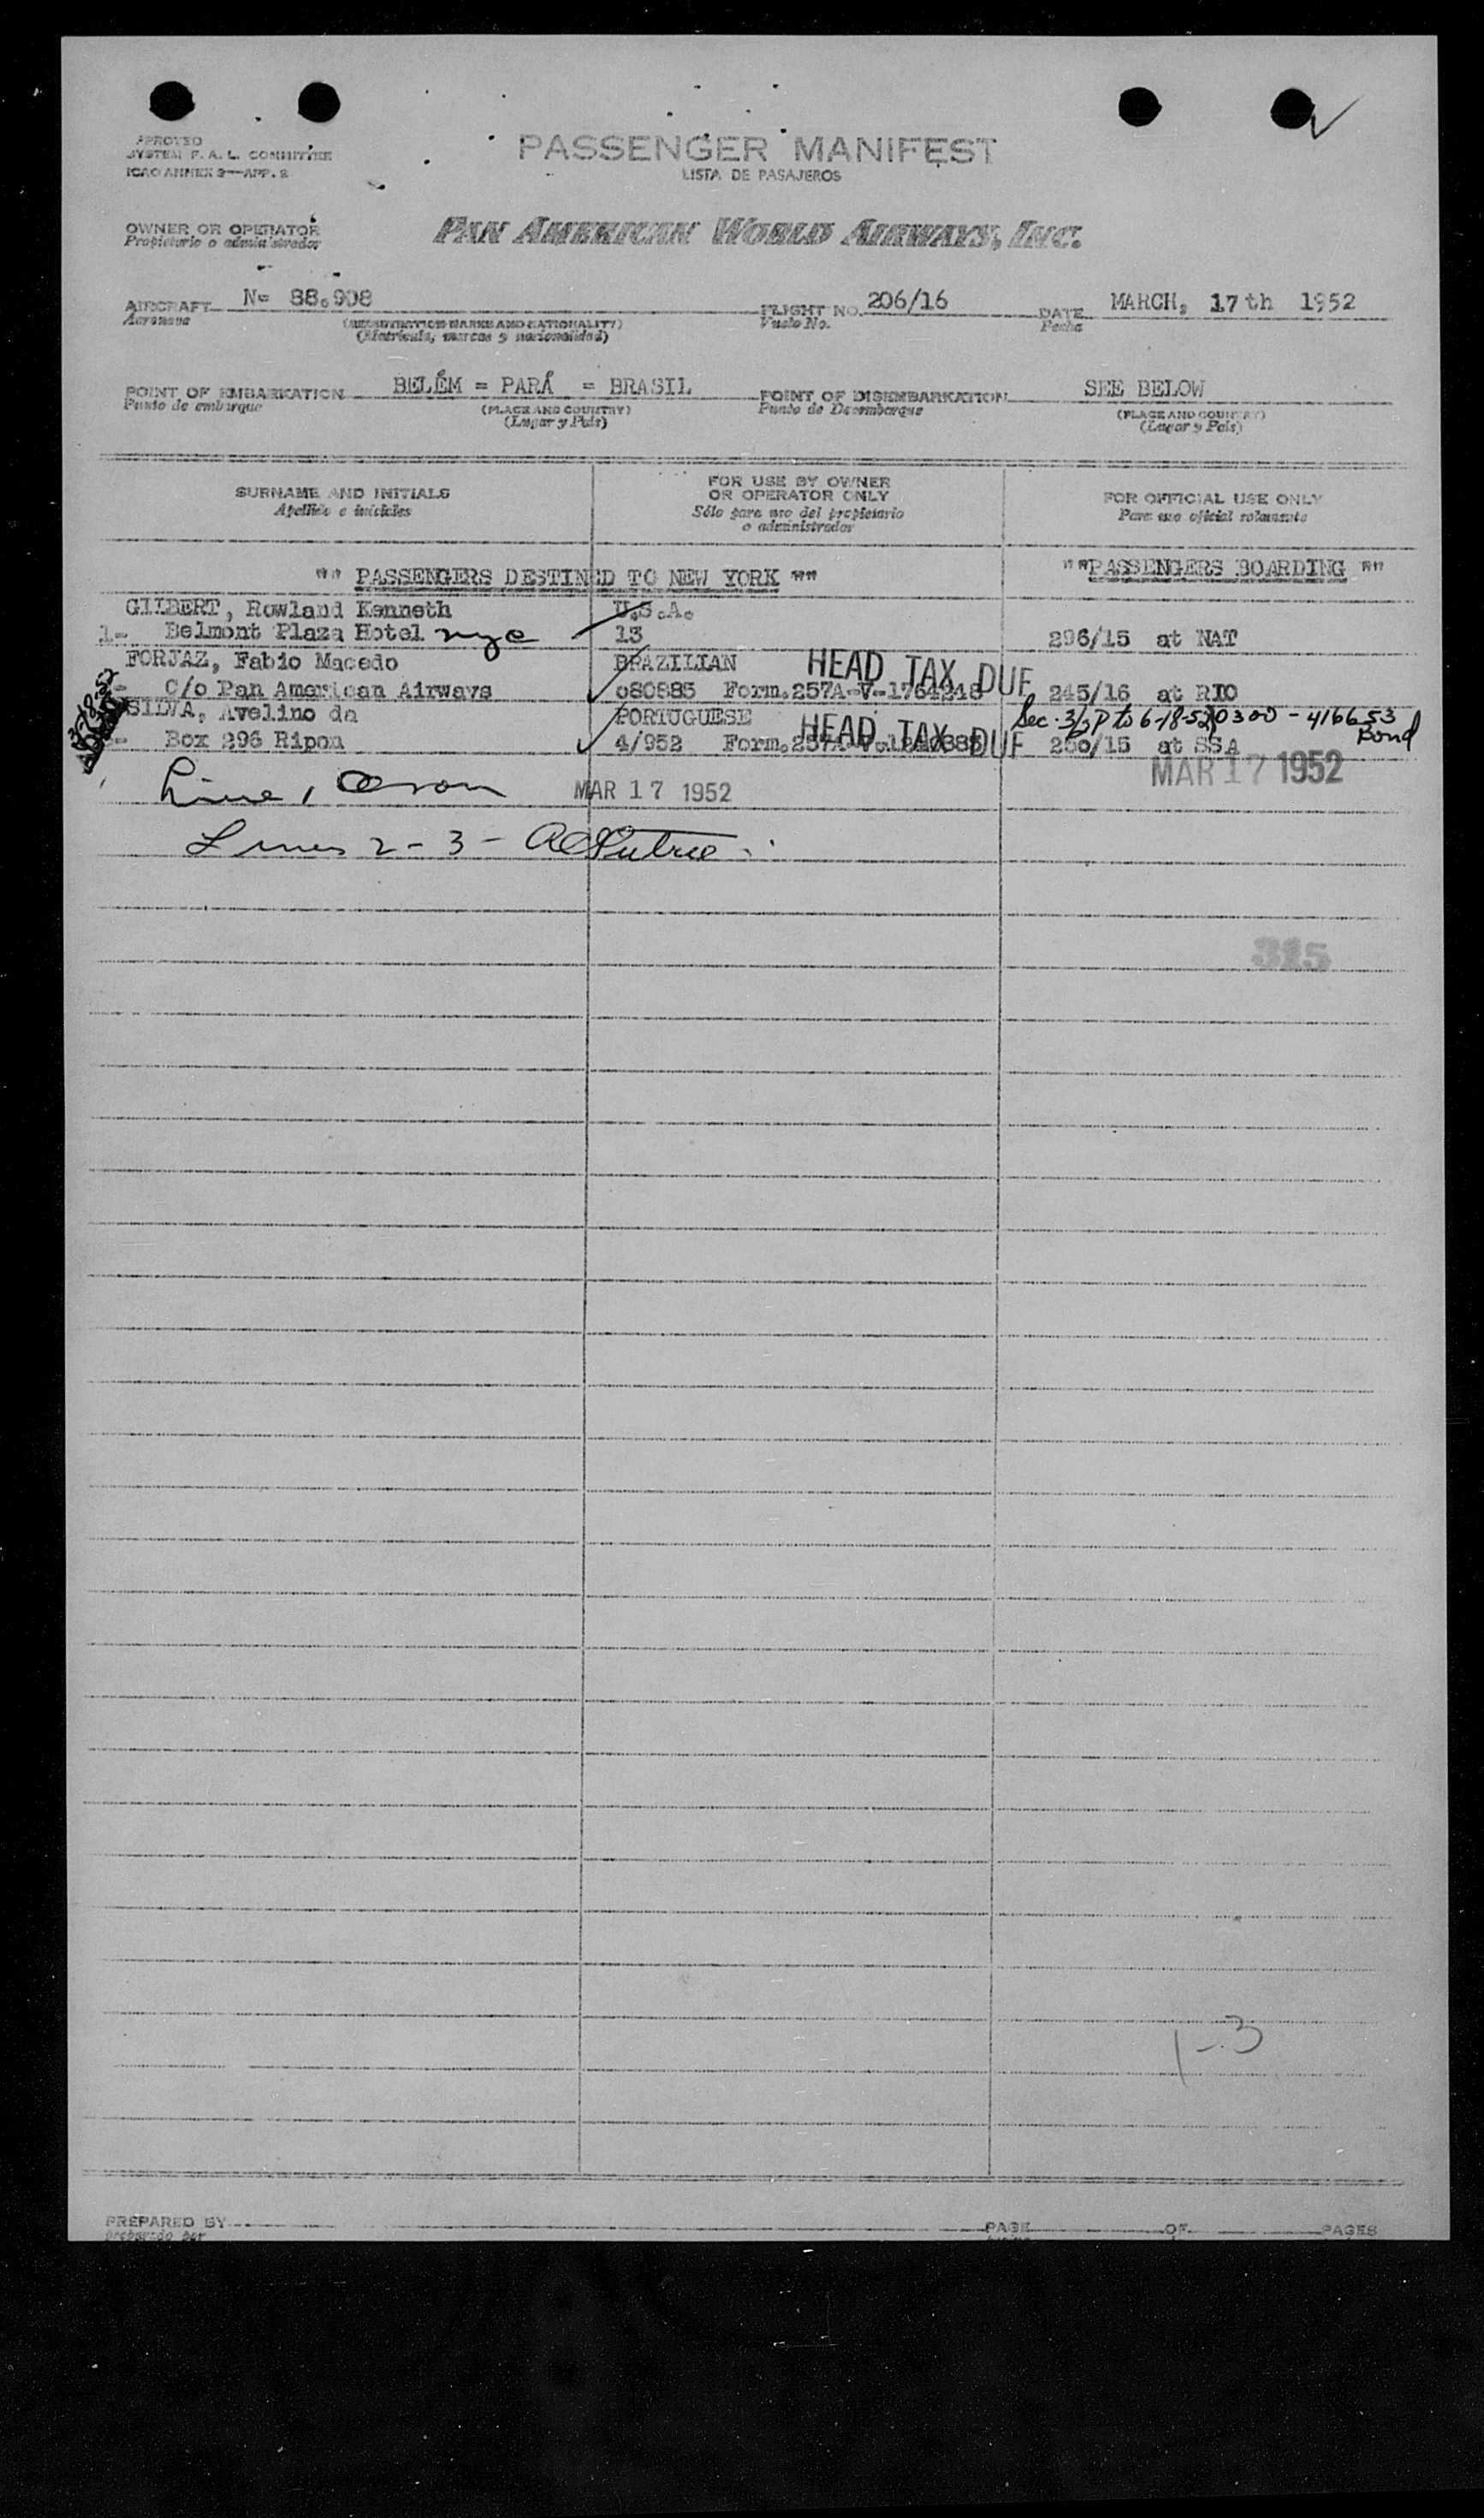 APPROVED
SYSTEM F. A. L. COMMITTEE
ICAO ANNEX 9—APP. 2
PASSENGER MANIFEST
LISTA DE PASAJEROS
OWNER OR OPERATOR
Propietario o administrador
PAN AMERICAN WORLD AIRWAYS, INC.
AIRCRAFT N= 88.908 FLIGHT NO. 206/16 DATE MARCH, 17th 1952
Aeronave (REGISTRATION MARKS AND NATIONALITY) Vuelo No. Fecha
(Matrícula, marcas y nacionalidad)
POINT OF EMBARKATION BELÉM = PARÁ = BRASIL POINT OF DISEMBARKATION SEE BELOW
Punto de embarque (PLACE AND COUNTRY) Punto de Desembarque (PLACE AND COUNTRY)
(Lugar y País) (Lugar y País)
SURNAME AND INITIALS
Apellido e iniciales
FOR USE BY OWNER
OR OPERATOR ONLY
Sólo para uso del propietario
o administrador
FOR OFFICIAL USE ONLY
Para uso oficial solamente
"" PASSENGERS DESTINED TO NEW YORK "" ""PASSENGERS BOARDING ""
GILBERT, Rowland Kenneth U.S.A.
1- Belmont Plaza Hotel nyc 13 296/15 at NAT
FORJAZ, Fabio Macedo BRAZILIAN HEAD TAX DUE
C/o Pan American Airways 080885 Form.257A-V-1764248 245/16 at RIO
SILVA, Avelino da PORTUGUESE HEAD TAX DUE Sec. 3/2 P to 6-18-52 0300-416653
Box 296 Ripon 4/952 Form.257A-V. 250/15 at SSA Bond
3-18-52
MAR 17 1952
Line 1 MAR 17 1952
Lines 2-3-
315
1-3
PREPARED BY PAGE OF PAGES
preparado por